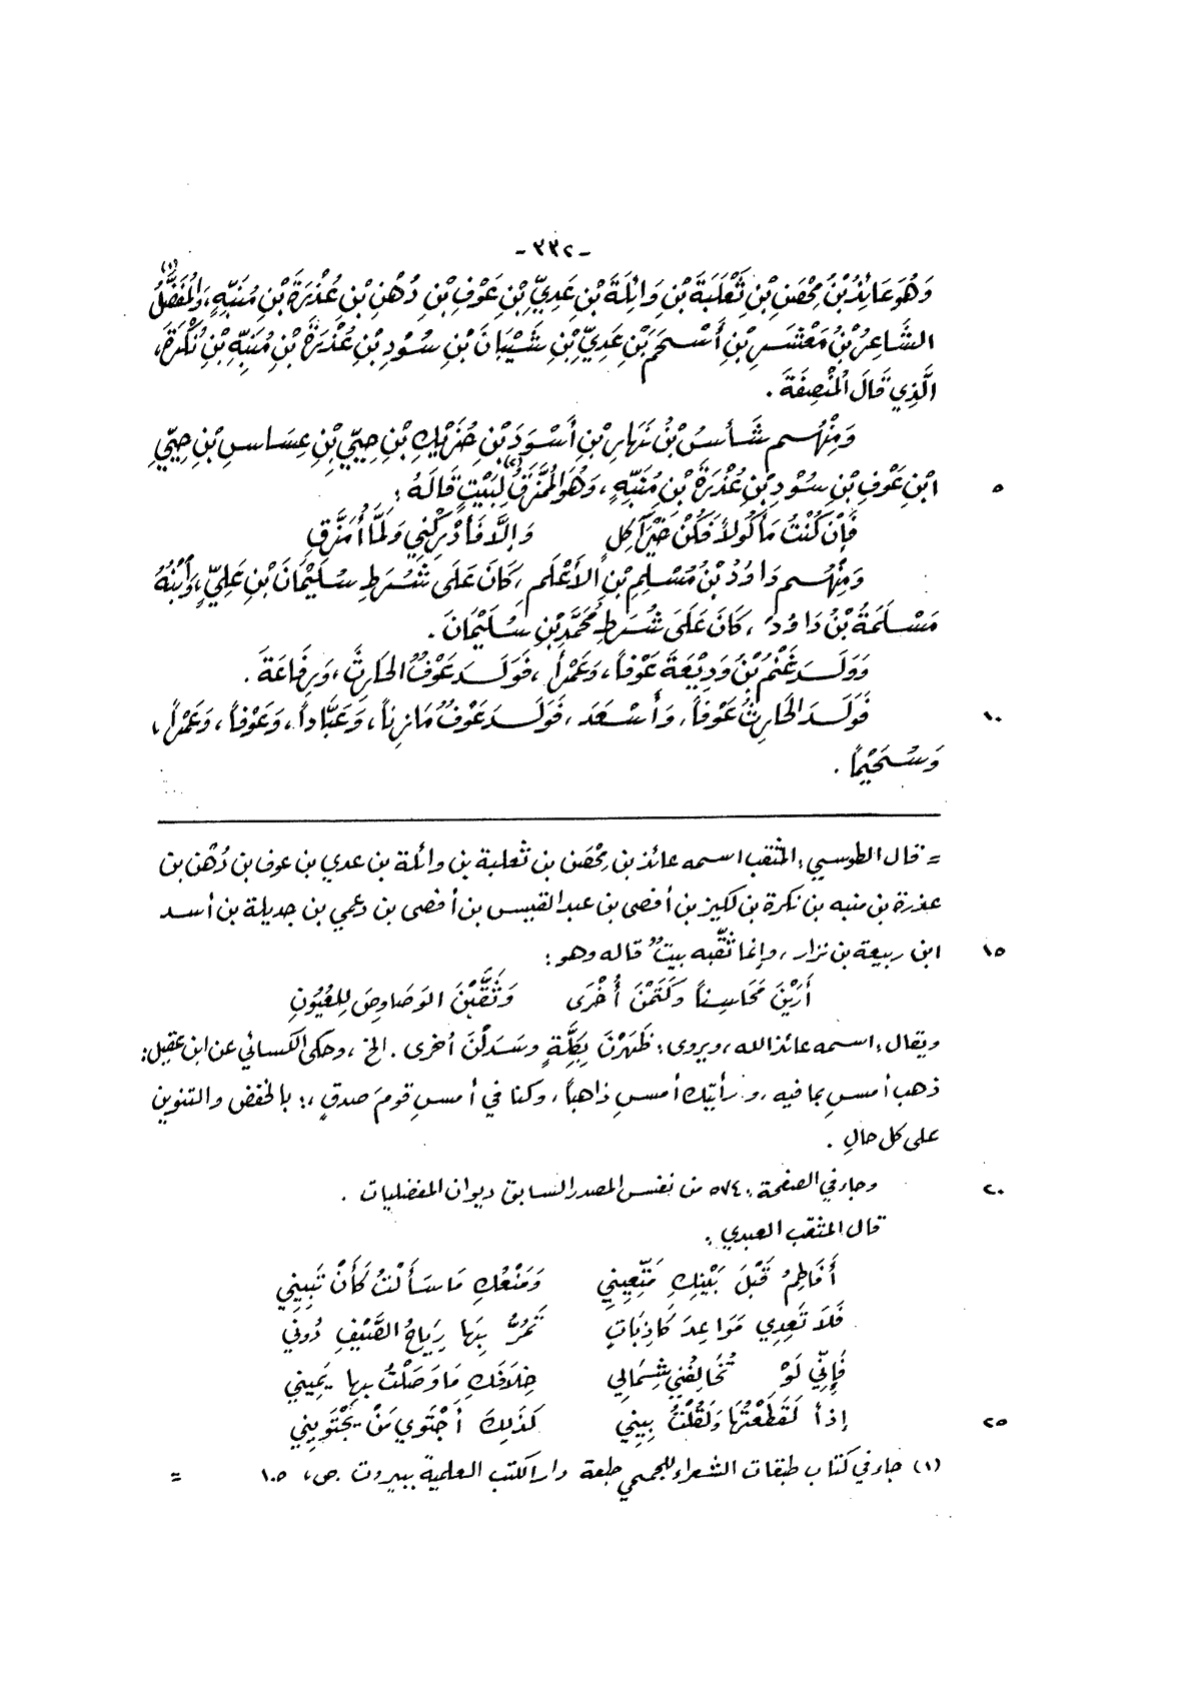 - ٣٣٢ -
وَهُوَ عَائِذُ بْنُ مِحْصَنِ بْنِ ثَعْلَبَةَ بْنِ وَائِلَةَ بْنِ عَدِيِّ بْنِ عَوْفِ بْنِ دُهْنِ بْنِ عُذْرَةَ بْنِ مُنَبِّهٍ، وَالْمُفَضَّلُ (١)
الشَّاعِرُ بْنُ مَعْشَرِ بْنِ أَسْحَمَ بْنِ عَدِيِّ بْنِ شَيْبَانَ بْنِ سُوْدِ بْنِ عُذْرَةَ بْنِ مُنَبِّهِ بْنِ نُكْرَةَ،
الَّذِي قَالَ الْمُنْصِفَةَ .
وَمِنْهُم شَأْسُ بْنُ نَهَارِ بْنِ أَسْوَدَ بْنِ حُزَيْكِ بْنِ حِيَيِّ بْنِ عِسَاسِ بْنِ حِيَيِّ
٥ ابْنِ عَوْفِ بْنِ سُوْدِ بْنِ عُذْرَةَ بْنِ مُنَبِّهٍ، وَهُوَ الْمُمَزَّقُ (٢) لِبَيْتٍ قَالَهُ :
فَإِنْ كُنْتُ مَأْكُولاً فَكُنْ خَيْرَ آكِلٍ وَإِلَّا فَأَدْرِكْنِي وَلَمَّا أُمَزَّقِ
وَمِنْهُم دَاوُدُ بْنُ مُسْلِمِ بْنِ الأَعْلَمِ، كَانَ عَلَى شُرَطِ سُلَيْمَانَ بْنِ عَلِيٍّ، وَابْنُهُ
مَسْلَمَةُ بْنُ دَاوُدَ، كَانَ عَلَى شُرَطِ مُحَمَّدِ بْنِ سُلَيْمَانَ .
وَوَلَدَ غَنْمُ بْنُ وَدِيْعَةَ عَوْفاً، وَعَمْراً، فَوَلَدَ عَوْفٌ الحَارِثَ، وَرِفَاعَةَ .
١٠ فَوَلَدَ الحَارِثُ عَوْفاً، وَأَسْعَدَ، فَوَلَدَ عَوْفٌ مَازِناً، وَعَبَّاداً، وَعَوْفاً، وَعَمْراً،
وَسُحَيْماً .
= قال الطوسي : المثقب اسمه عائذ بن مِحْصَن بن ثعلبة بن وائلة بن عدي بن عوف بن دُهْن بن
عذرة بن منبه بن نكرة بن لكيز بن أفصى بن عبد القيس بن أفصى بن دعمي بن جديلة بن أسد
١٥ ابن ربيعة بن نزار، وإنما ثقَّبه بيتٌ قاله وهو :
أَرَيْنَ مَحَاسِناً وكَتَمْنَ أُخْرَى وَثَقَّبْنَ الوَصَاوِصَ لِلعُيُونِ
ويقال : اسمه عائذ الله، ويروى : ظَهَرْنَ بِكِلَّةٍ وسَدَلْنَ أخرى . الخ، وحكى الكسائي عن ابن عقيل :
ذهب أمسِ بما فيه، ورأيتك أمسِ ذاهباً، وكنا في أمسِ قومَ صدقٍ، ؛ بالخفض والتنوين
على كل حالٍ .
٢٠ وجاء في الصفحة : ٥٧٤ من نفس المصدر السابق ديوان المفضليات .
قال المثقب العبدي :
أَفَاطِمُ قَبْلَ بَيْنِكِ مَتِّعِيْنِي وَمَنْعُكِ مَا سَأَلْتُ كَأَنْ تَبِيْنِي
فَلَا تَعِدِي مَوَاعِدَ كَاذِبَاتٍ تَمُرُّ بِهَا رِيَاحُ الصَّيْفِ دُوني
فَإِنِّي لَوْ تُخَالِفُنِي شِمَالِي خِلَافَكِ مَا وَصَلْتُ بِها يَمِيني
٢٥ إِذاً لَقَطَعْتُهَا وَلَقُلْتُ بِيْنِي كَذَلِكَ أَجْتَوِي مَنْ يَجْتَوِيْنِي
(١) جاء في كتاب طبقات الشعراء للجمحي طبعة دار الكتب العلمية ببيروت .ص، ١٠٥ =